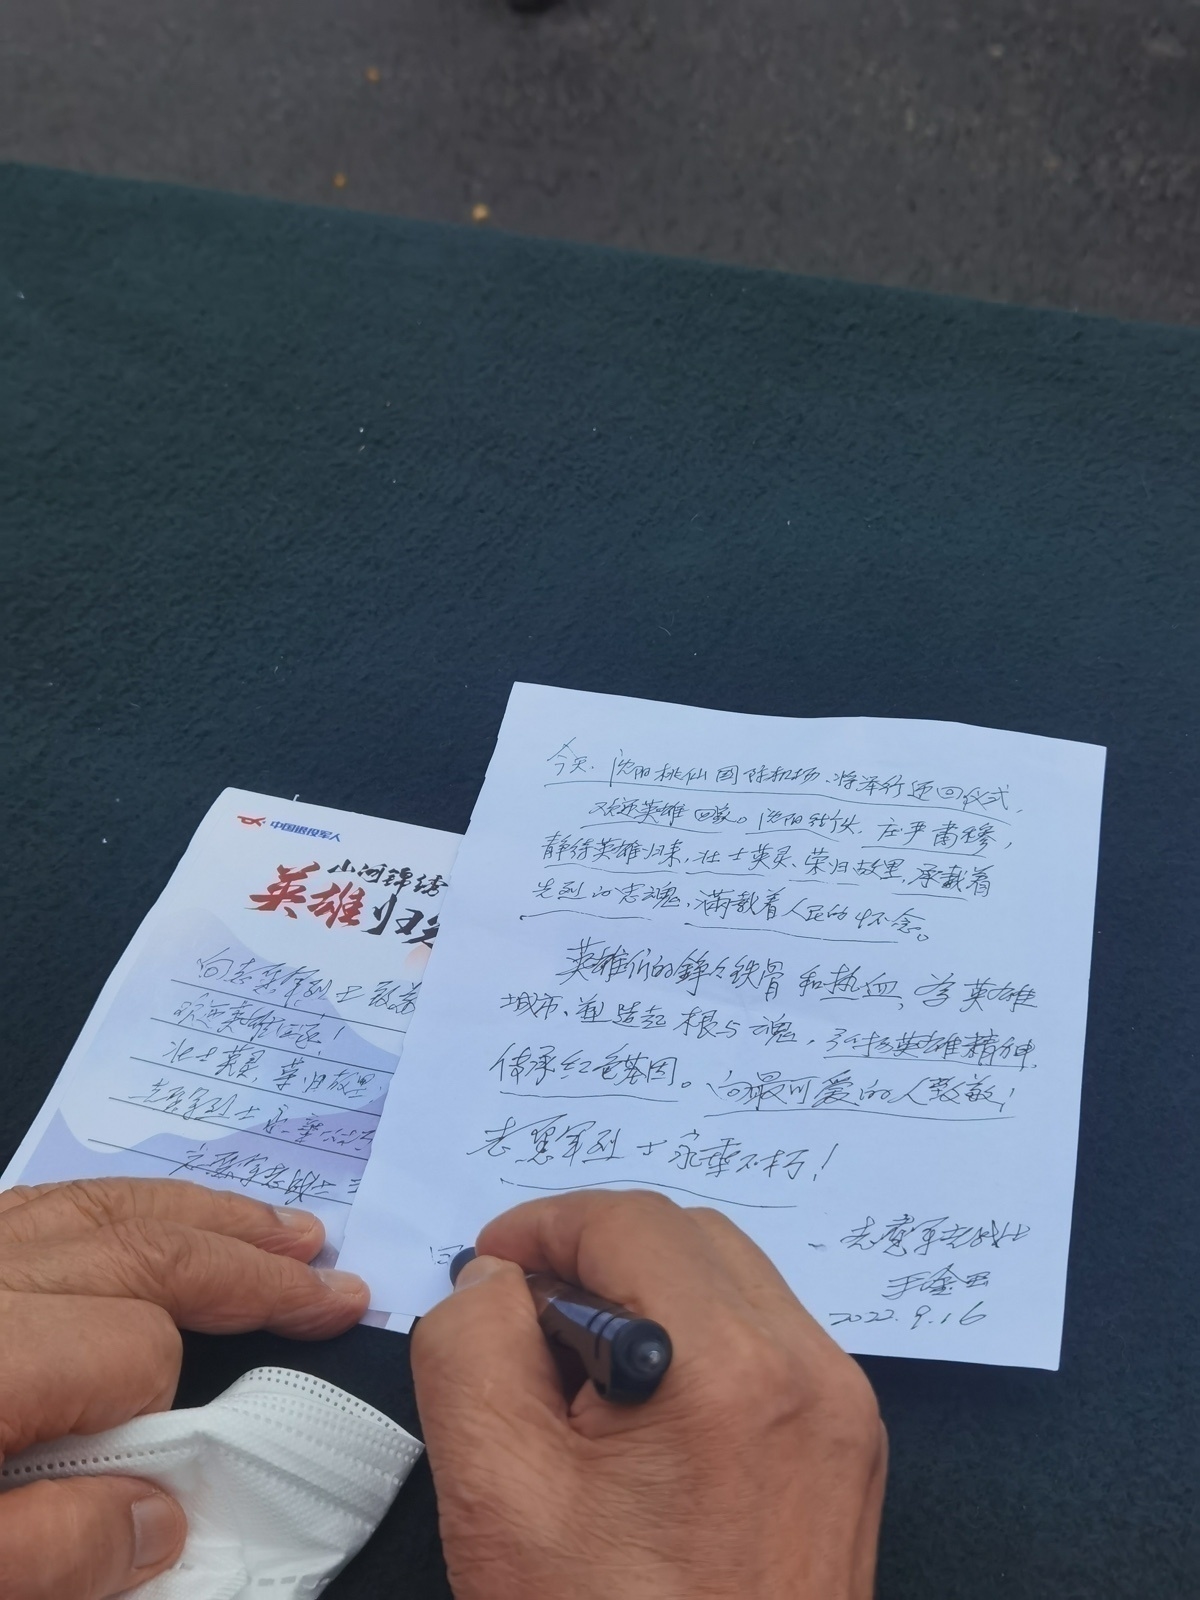 中国退役军人
山河锦绣
英雄归
向志愿军烈士致敬
欢迎英雄回家！
壮士英灵，荣归故里
志愿军烈士永垂
志愿军老战士
今天、沈阳桃仙国际机场、将举行迎回仪式，
欢迎英雄回家。沈阳 庄严肃穆，
静待英雄归来，壮士英灵、荣归故里，承载着
先烈的忠魂，满载着人民的怀念。
英雄们的铮々铁骨和热血，为英雄
城市、塑造起根与魂，弘扬英雄精神，
传承红色基因。向最可爱的人致敬！
志愿军烈士永垂不朽！
志愿军老战士
2022.9.16